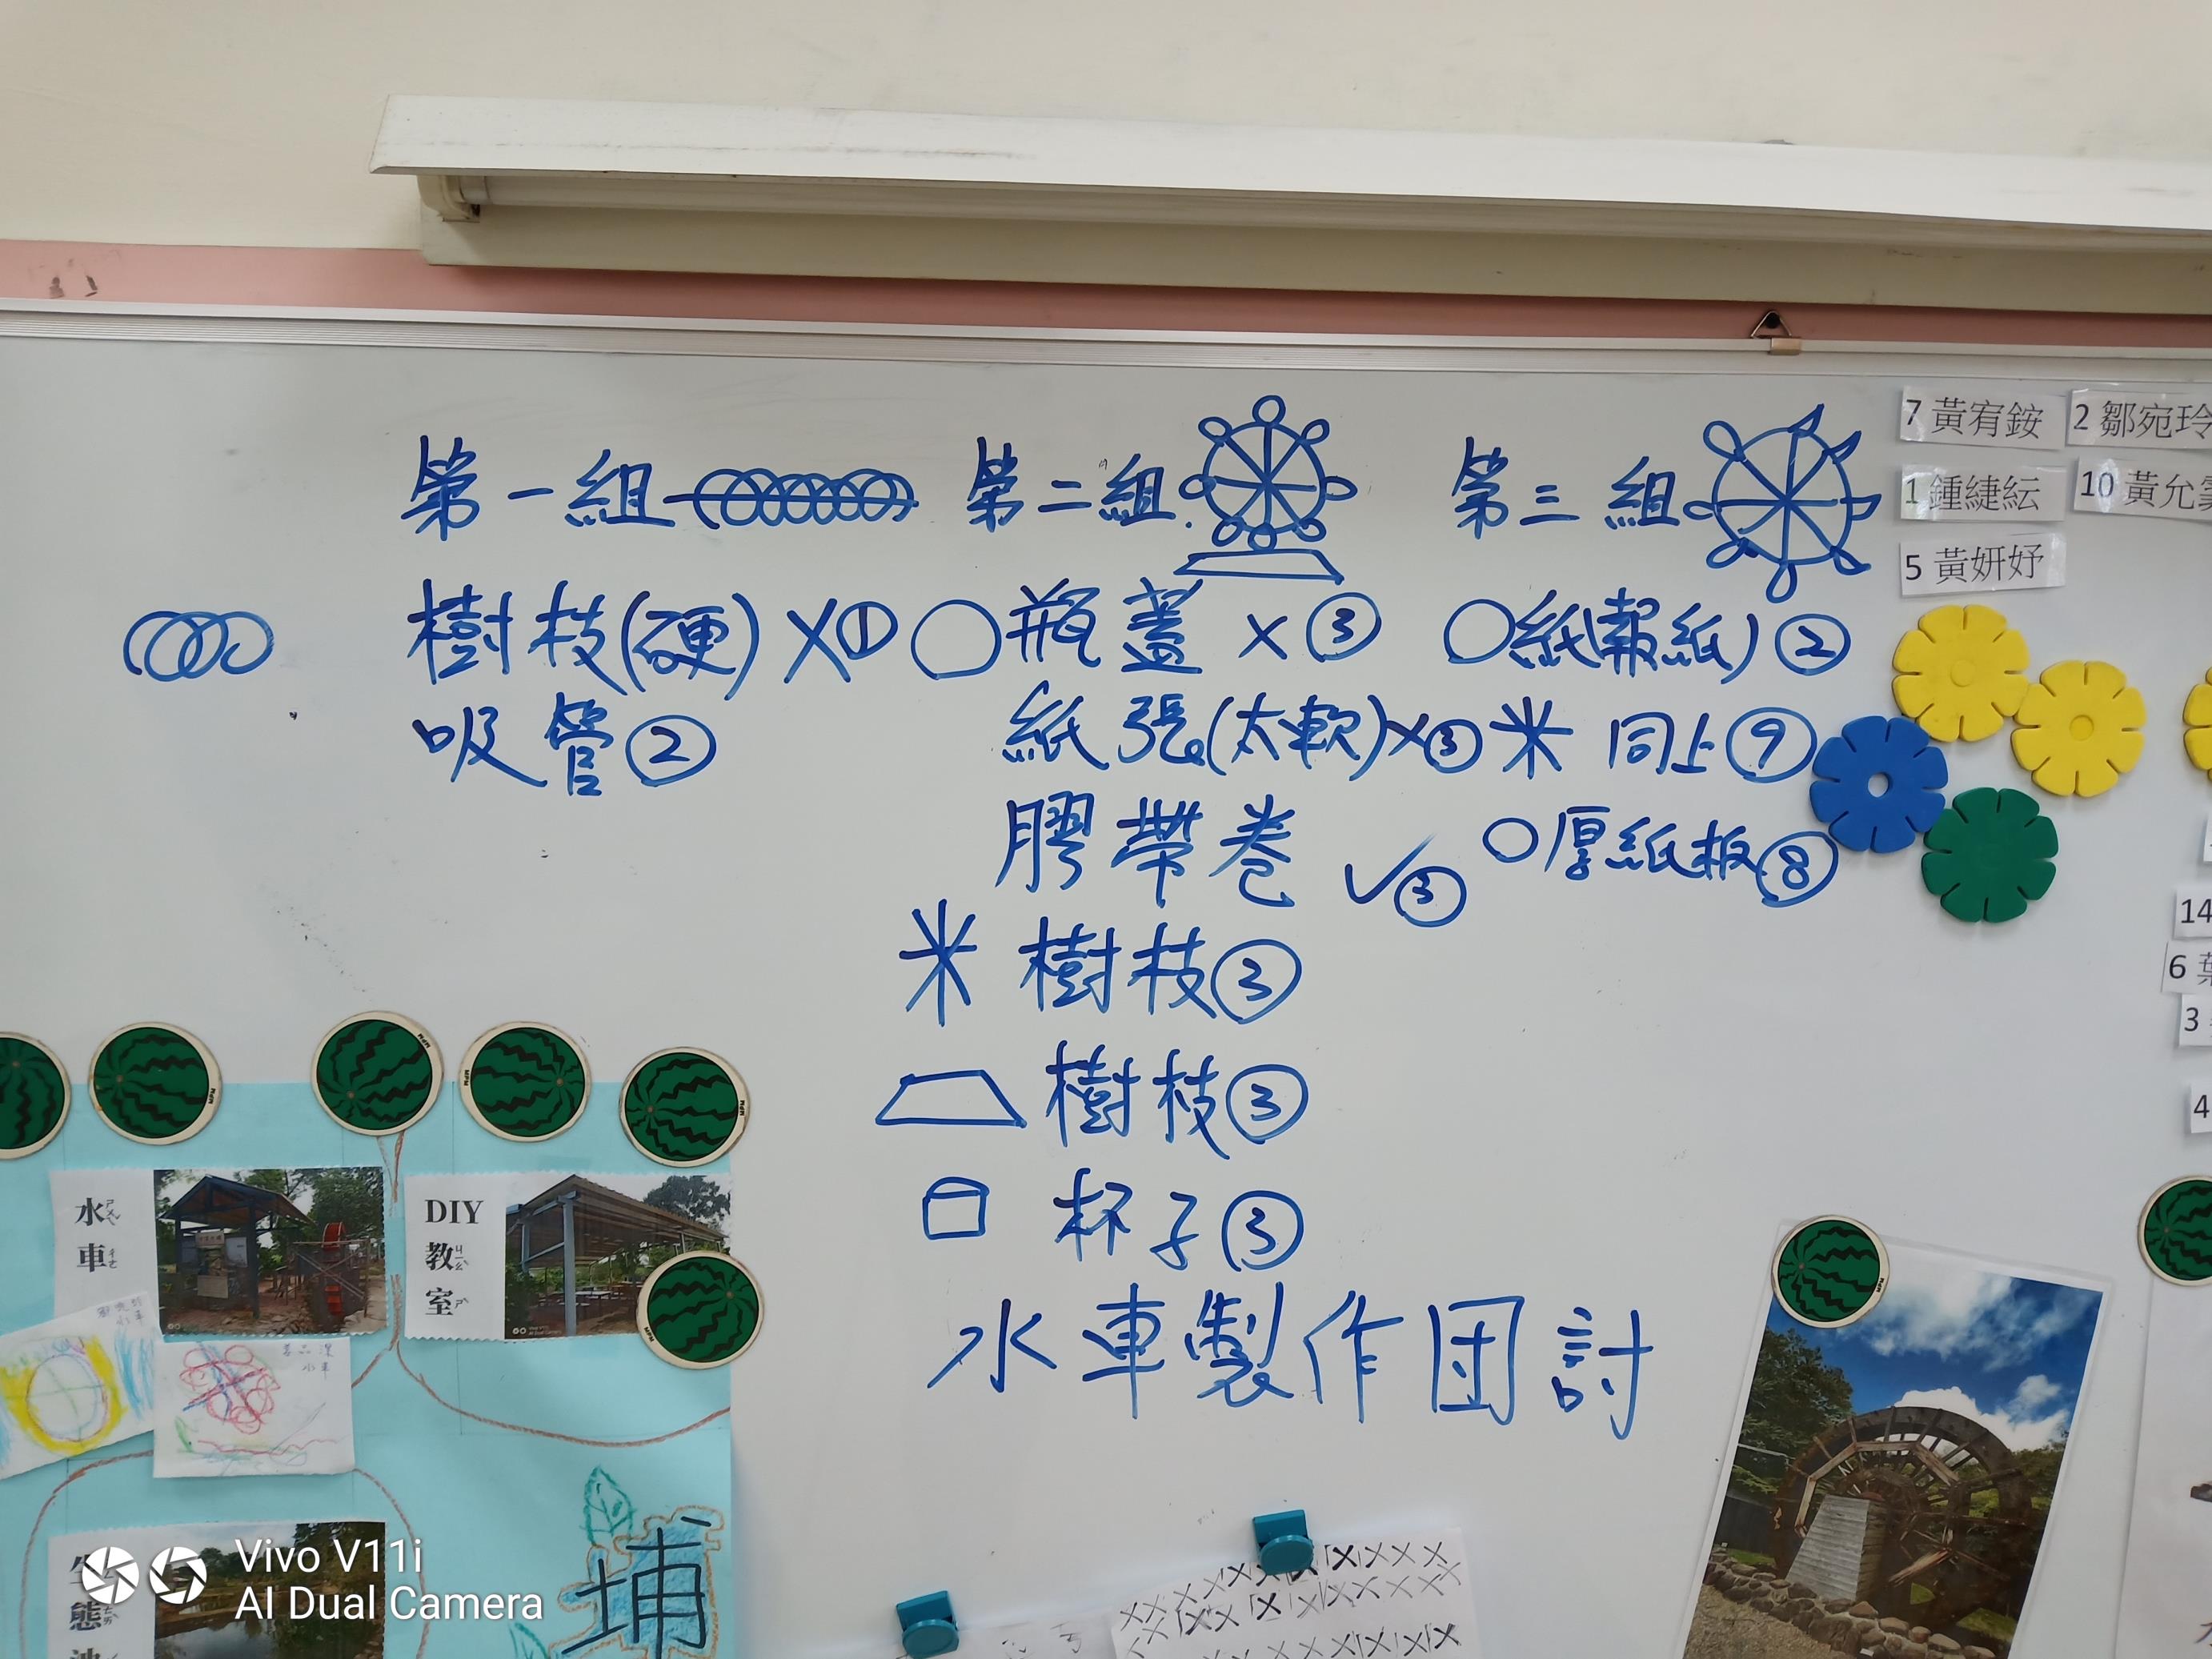 第一組
樹枝(硬) X①
吸管②
第二組
○瓶蓋 x ③
紙張(太軟)x③
膠帶卷 ✓③
米 樹枝③
樹枝③
杯子③
第三組
○紙(報紙)②
米 同上⑨
○厚紙板⑧
水車製作团討
7 黃宥銨
2 鄒宛玲
1 鍾緁紜
10 黃允
5 黃妍妤
14
6 葉
3
4
水ㄕㄨㄟˇ
車ㄔㄜ
DIY
教ㄐㄧㄠˋ
室ㄕˋ
生
態ㄊㄞˋ
池
埔
Vivo V11i
AI Dual Camera